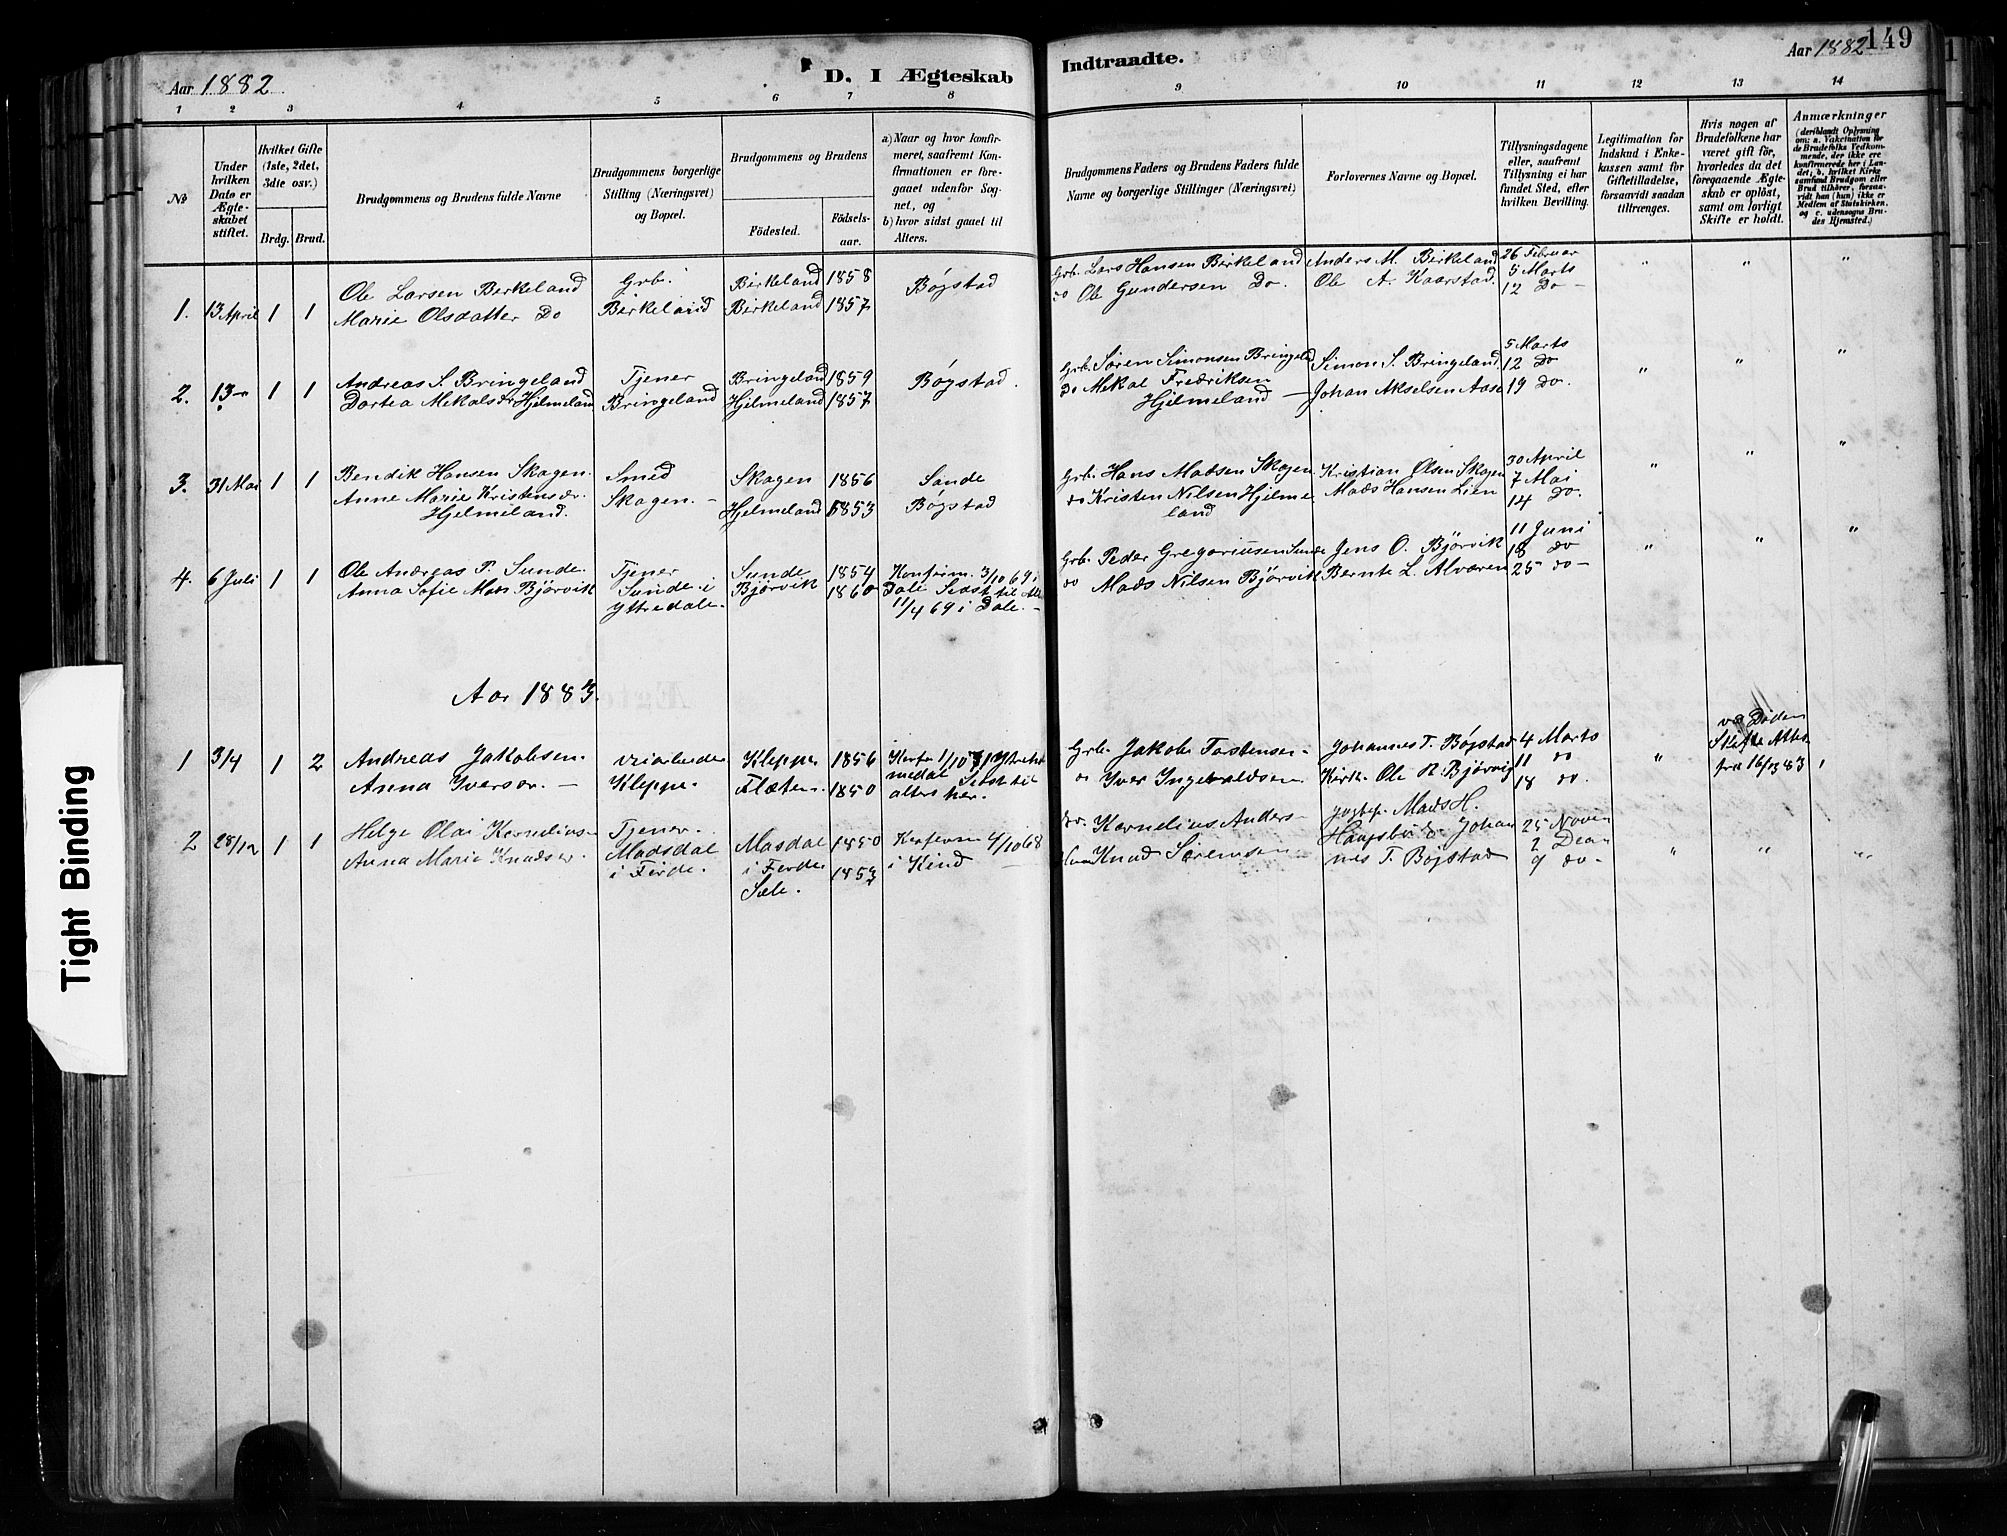 Aar 1882.
D. I Ægteskab
Indtraadte.
Aar 1882
149
1 2 3 4 5 6 7 8 9 10 11 12 13 14
No
Under hvilken Dato er Ægteskabet stiftet.
Hvilket Gifte (1ste, 2det, 3die osv.)
Brdg. Brud.
Brudgommens og Brudens fulde Navne
Brudgommens borgerlige Stilling (Næringsvei) og Bopæl.
Brudgommens og Brudens
Födested. Födselsaar.
a) Naar og hvor konfirmeret, saafremt Konfirmationen er foregaaet udenfor Sognet, og
b) hvor sidst gaaet til Alters.
Brudgommens Faders og Brudens Faders fulde Navne og borgerlige Stillinger (Næringsvei)
Forlovernes Navne og Bopæl.
Tillysningsdagene eller, saafremt Tillysning ei har fundet Sted, efter hvilken Bevilling.
Legitimation for Indskud i Enkekassen samt for Giftetilladelse, forsaavidt saadan tiltrænges.
Hvis nogen af Brudefolkene har været gift för, hvorledes da det foregaaende Ægteskab er oplöst, samt om lovligt Skifte er holdt.
Anmærkninger
(deriblandt Oplysning om: a. Vakcination for de Brudefolks Vedkommende, der ikke ere konfirmerede her i Landet; b. hvilket Kirkesamfund Brudgom eller Brud tilhörer, forsaavidt han (hun) ikke er Medlem af Statskirken, og c. udensogns Brudes Hjemsted.)
1. 13 April 1 1 Ole Larsen Birkeland Grb. Birkeland 1858 Bøgstad Grb. Lars Hansen Birkeland Anders M. Birkeland 26 Februar " " "
Marie Olsdatter Do Birkeland Birkeland 1857 do Ole Gundersen Do. Ole A. Kaarstad. 5 Marts
12 Do -
2. 13 - 1 1 Andreas S. Bringeland Tjener Bringeland 1859 Bøgstad. Grb. Søren Simonsen Bringeld Simon S. Bringeland. 5 Marts " " "
Dortea Mekalsdr Hjelmeland Bringeland Hjelmeland 1857 Do Mekal Fredriksen 12 Do
Hjelmeland - Johan Akselsen Aase 19 do.
3. 31 Mai 1 1 Bendik Hansen Skagen. Smed Skagen 1856 Sande Grb. Hans Madsen Skagen Kristian Olsen Skagen 30 April " " "
Anne Marie Kristensdr. Skagen. - Hjelmeland 1853 Bøgstad do Kristen Nilsen Hjelme Mads Hansen Lien 7 Mai
Hjelmeland. land 14 do.
4. 6 Juli 1 1 Ole Andreas P. Sunde. Tjener Sunde 1854 Konfirm. 3/10 69 i Grb. Peder Gregoriusen Sunde Jens O. Bjørvik 11 Juni " " "
Anna Sofie Mads Bjørvik Sunde i Bjørvik 1860 Dale Sidst til do Mads Nilsen Bjørvik Bernte L. Alværen 18 do
Yttredale. 11/4 69 i Dale. - 25 do -
Aar 1883.
1 3/4 1 2 Andreas Jakobsen Kleppe 1856 Grb. Jakob Tostensen - Johannes T. Bøgstad 4 Marts " ved Døden
Anna Iversdr. - Kleppe. Flæten. 1850 Sidst til do Iver Ingebrigtsen Kirk. Ole R. Bjørvig 11 do Skifte Attst
alters her. 18 do. fra 16/3 83
2 28/12 1 1 Helge Olai Kornelius- Tjener. Masdal 1850 Konfirm 4/10 68 Kornelius Anders- Mads H. 25 Novem " " "
Anna Marie Knudsdr Masdal i Førde 1853 i Kind Knud Sørensen Johan 2 Dec
i Førde. nes T. Bøgstad 9 do -
Tight Binding